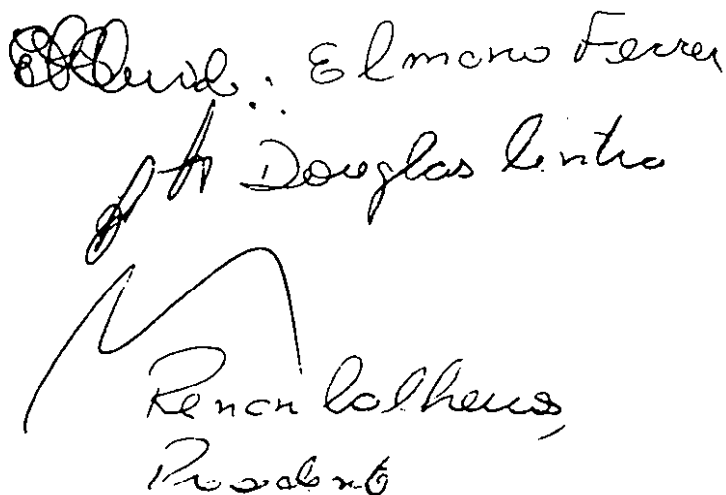 : Elmano Ferrer
Douglas Cintra
Renan Calheiros,
Presidente